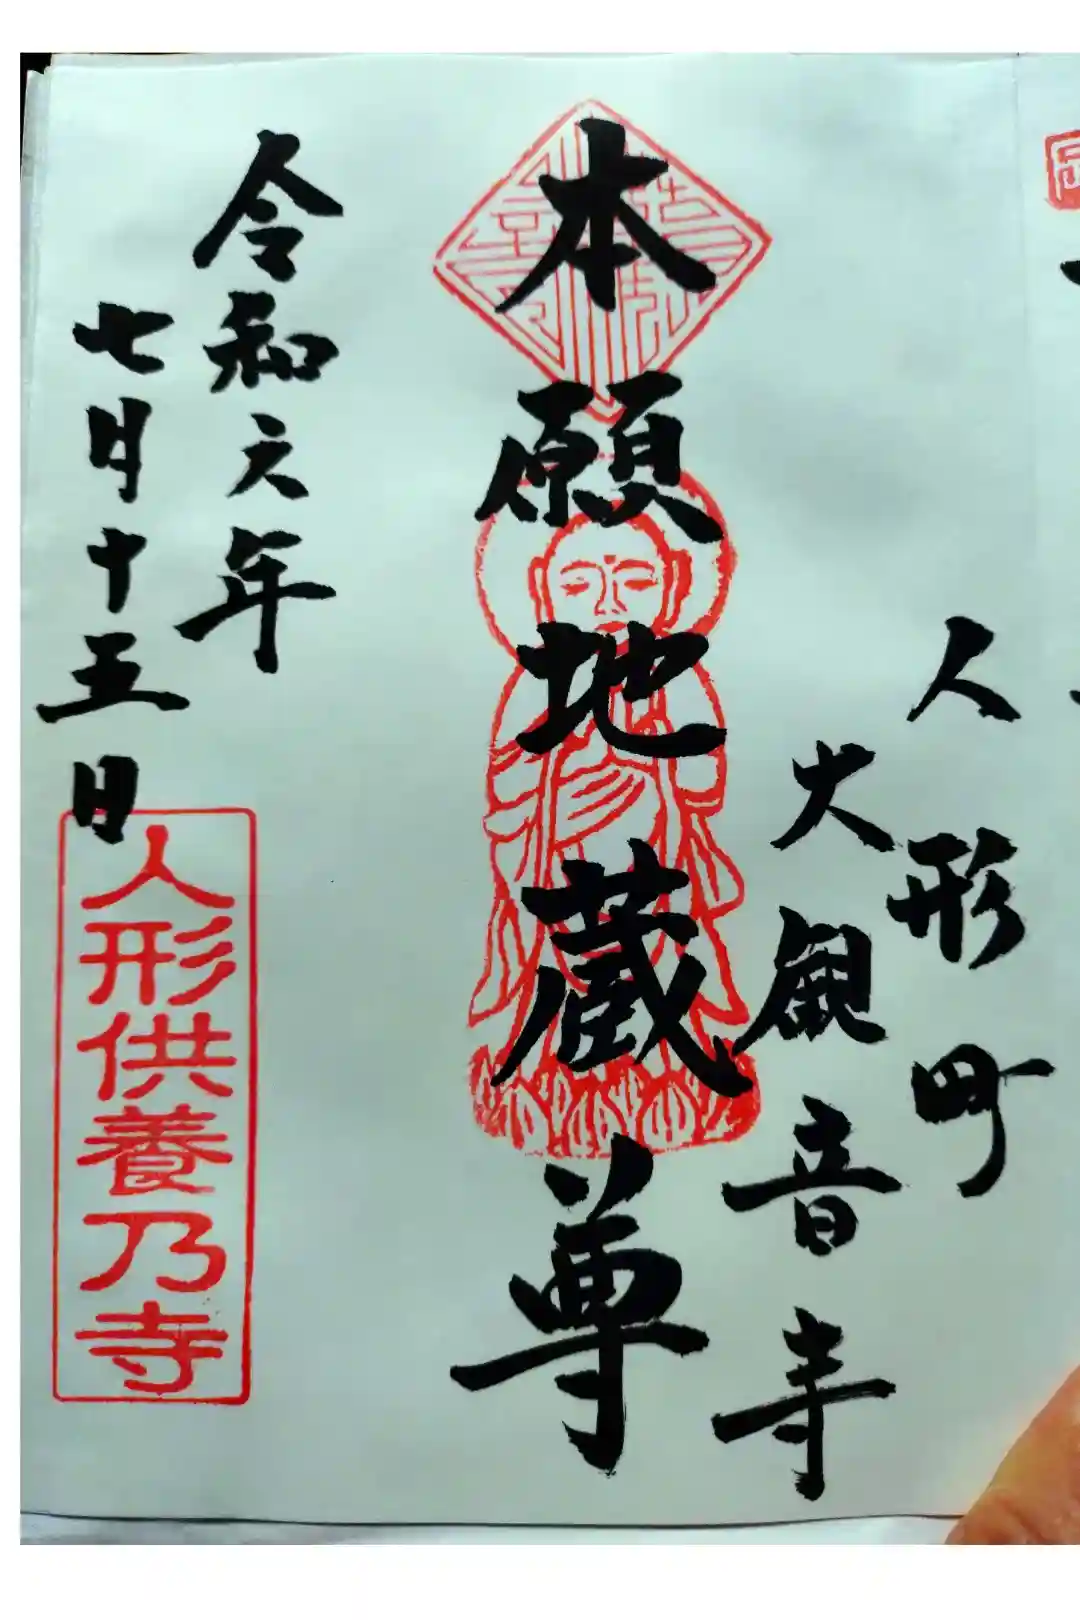 人形町
大観音寺
本願地蔵尊
令和六年
七月十五日
人形供養乃寺